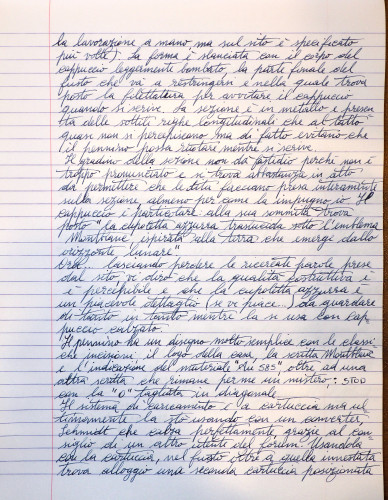 la lavorazione a mano ma sul sito è specificato
più volte). La forma è slanciata con il corpo del
cappuccio leggermente bombato, la parte finale del
fusto che va a restringersi e nella quale trova
posto la filettatura per avvitare il cappuccio
quando si scrive. La sezione è in metallo e presen
ta delle sottili righe longitudinali che al tatto
quasi non si percepiscono ma di fatto evitano che
il pennino possa ruotare mentre si scrive.
Il gradino della sezione non dà fastidio perché non è
troppo pronunciato e si trova abbastanza in alto
da permettere che le dita facciano presa interamente
sulla sezione, almeno per come la impugno io. Il
cappuccio è particolare: alla sua sommità trova
posto "la cupoletta azzurra traslucida sotto l'emblema
Montblanc, ispirata alla terra che emerge dallo
orizzonte lunare".
Ora... lasciando perdere le ricercate parole prese
dal sito, vi dirò che la qualità costruttiva è
percepibile e che la cupoletta azzurra è
un piacevole dettaglio (se vi piace...) da guardare
di tanto in tanto mentre la si usa con cap
puccio calzato.
Il pennino ha un disegno molto semplice con le classi
che incisioni, il logo della casa, la scritta Montblanc
e l'indicazione del materiale "Au 585", oltre ad una
altra scritta che rimane per me un mistero: STOD
con la "O" tagliata in diagonale.
Il sistema di caricamento è a cartuccia ma ul
timamente la sto usando con un converter
Schmidt che calza perfettamente grazie al con
siglio di un altro utente del forum. Usandola
con la cartuccia, nel fusto oltre a quella innestata
trova alloggio una seconda cartuccia posizionata